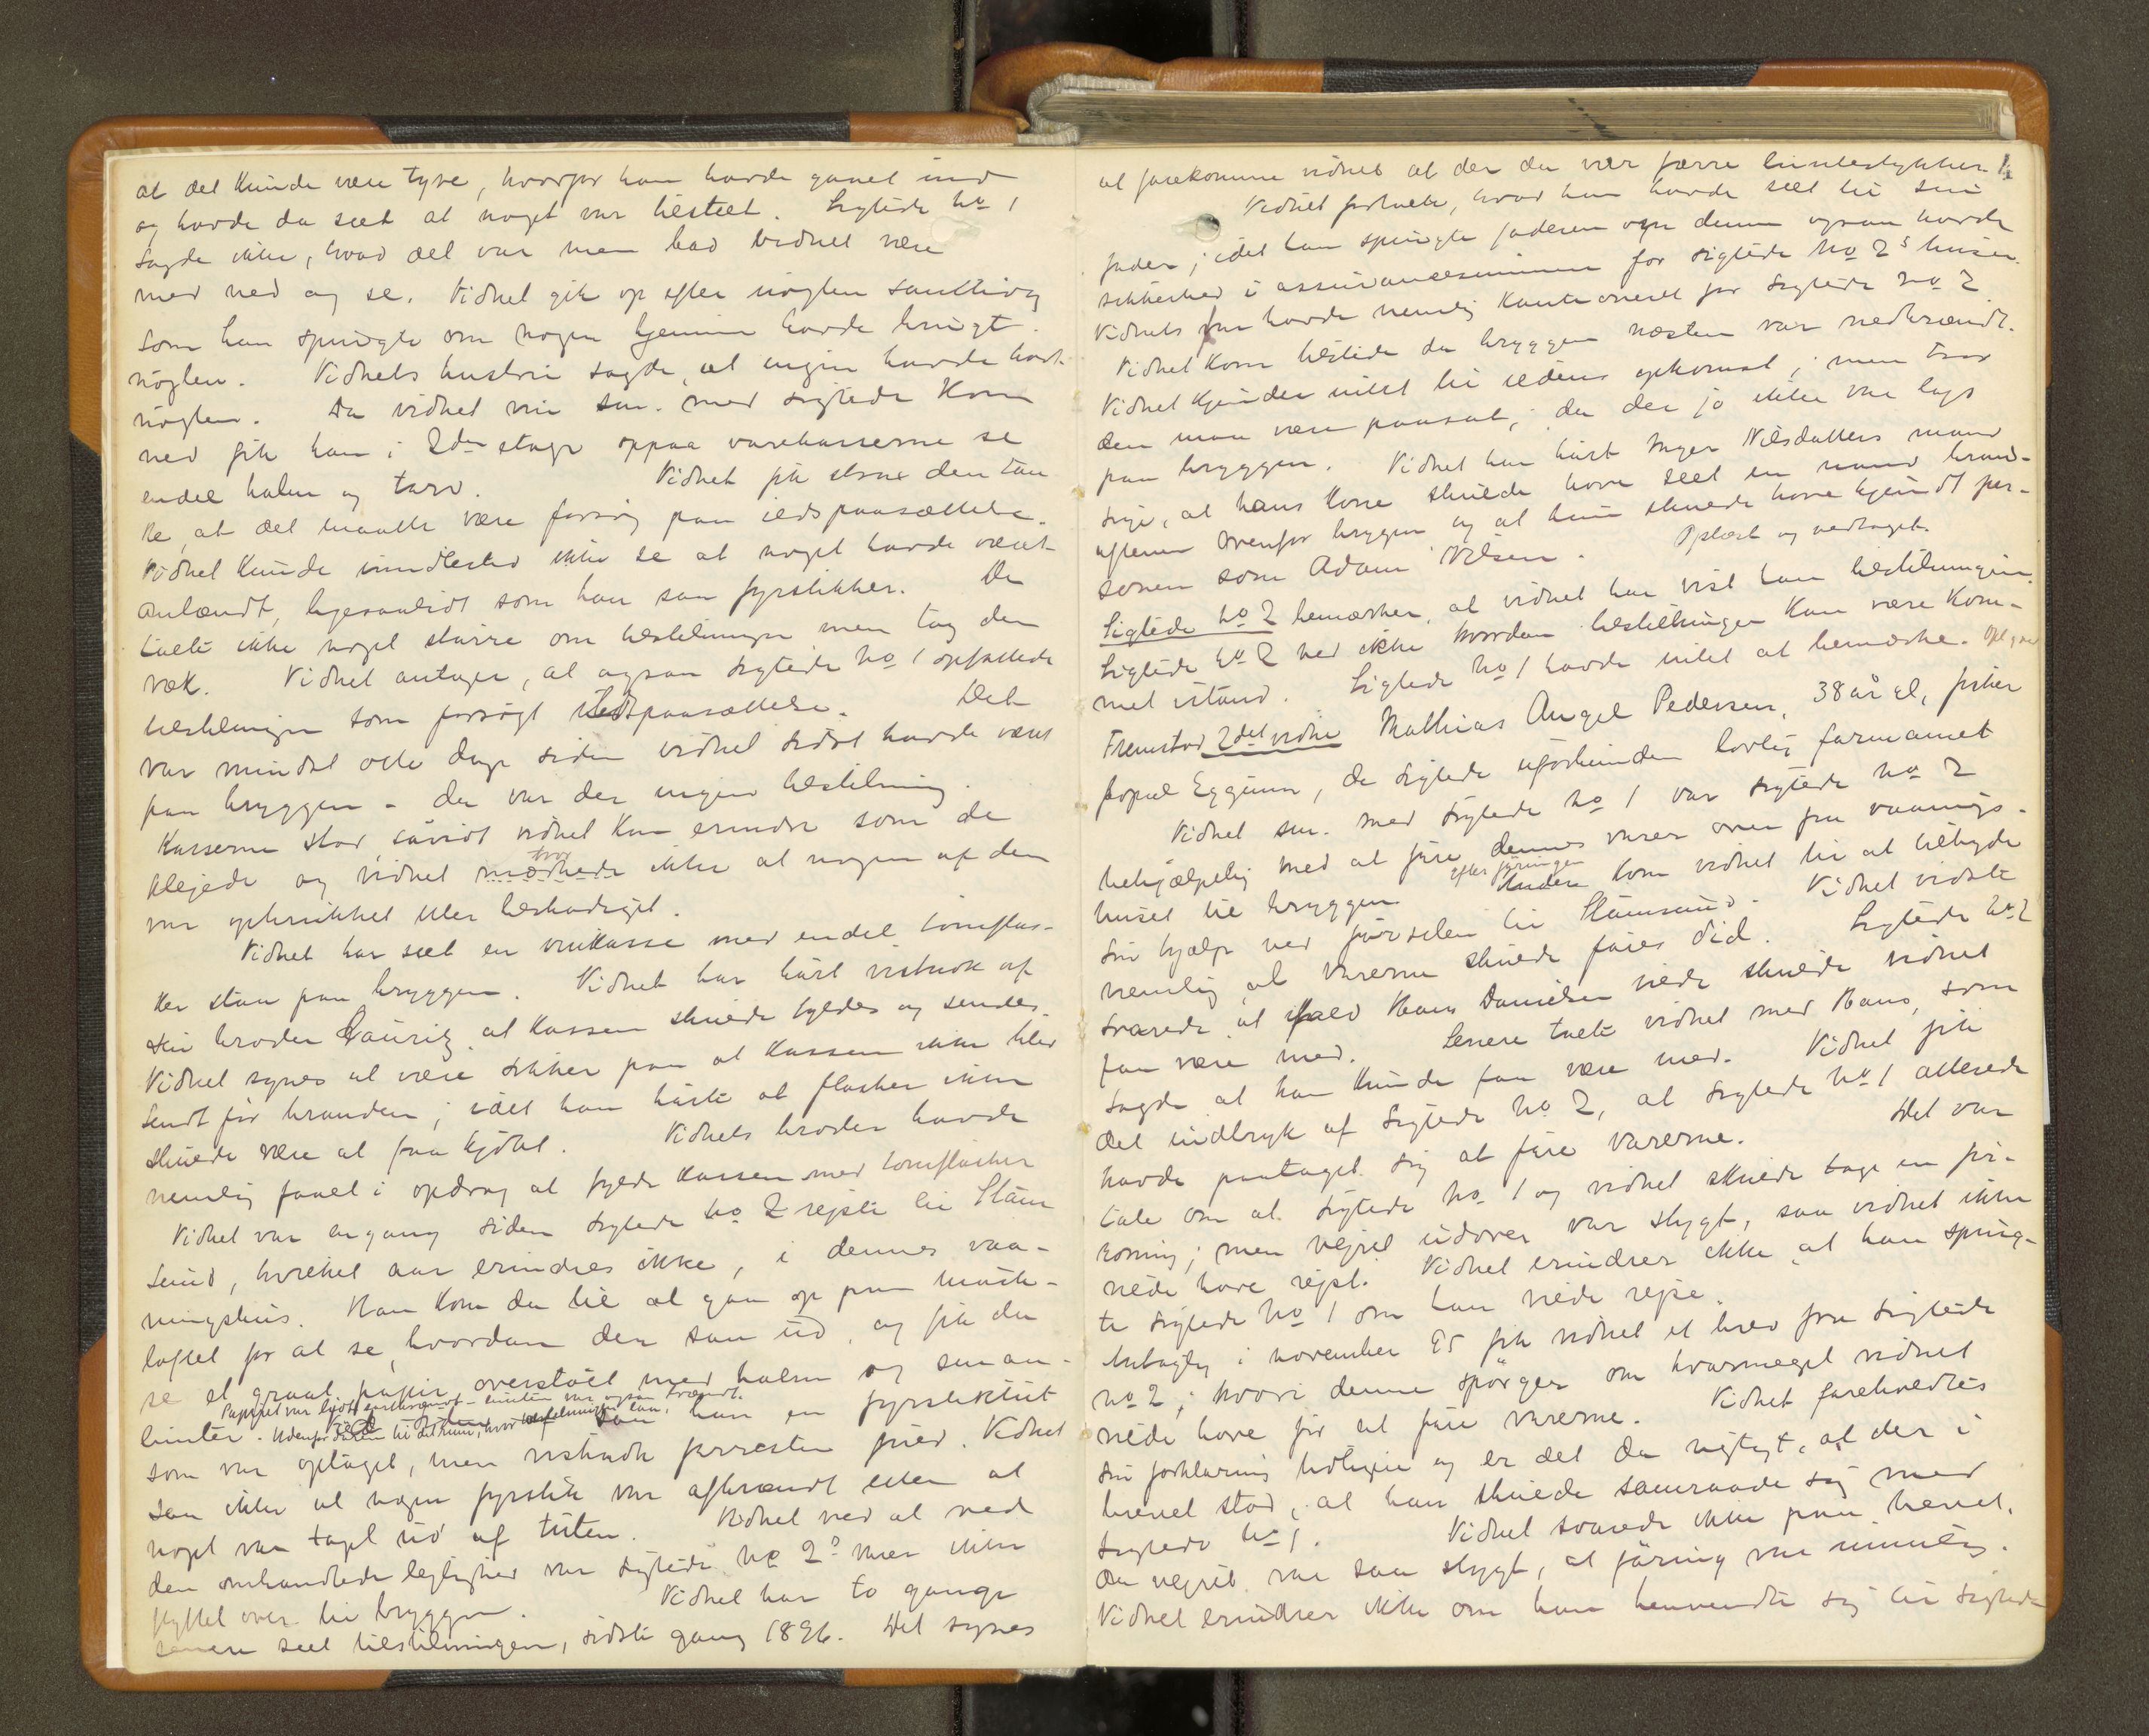 at det kunde være tyve, hvorfor han havde gaaet ind
og havde da seet at noget var bestilt. Sigtede No 1
sagde ikke, hvad det var men bad vidnet være
med ned og se. Vidnet gik op efter nøglen samtidig
som han spurgte om nogen hjemme havde brugt
nøglen. Vidnets hustru sagde, at ingen havde havt
nøglen. Da vidnet nu sm. med sigtede kom
ned fik han i 2den etage oppaa varekasserne se
endel halm og tarv. Vidnet fik strax den tan
ke, at det maatte være forsøg paa ildspaasættelse.
Vidnet kunde imidlertid ikke se at noget havde været
antændt, ligesaalidt som han saa fyrstikker. De
talte ikke noget større om bestilningen men tog den
væk. Vidnet antager, at ogsaa sigtede No 1 opfattede
bestilningen som forsøgt ildspaasættelse. Det
var mindst otte dage siden vidnet sidst havde været
paa bryggen - da var der ingen bestilning.
Kasserne stod, såvidt vidnet kan erindre som de
plejede og vidnet mærkede ikke at nogen af dem
tror
var opbrukket eller beskadiget.
Vidnet har seet en vinkasse med endel tomflas-
ker staa paa bryggen. Vidnet har hørt nistnok af
sin broder Lauritz at kassen skulde fyldes og sendes.
Vidnet synes at være sikker paa at kassen ikke blev
sendt før branden; idet han hørte at flasker ikke
skulde være at faa kjøbt. Vidnets broder havde
nemlig faaet i opdrag at fylde kassen med tomflasker
Vidnet var engang siden sigtede No 2 rejste til Stam
sund, hvilket aar erindres ikke, i dennes vaa-
ningshus. Han kom da til at gaa op paa mørk-
loftet for at se, hvordan der saa ud, og fik da
se et graat papir overstøit med halm og smaa-
Papiret var lidt antændt - linten var ogsaa brændt.
linter. Udenfor døren til det rum, hvor bestilningen laa, saa han en fyrstiktut
som var optaget, men nistnok forresten fuld. Vidnet
saa ikke at nogen fyrstik var afbrændt eller at
noget var taget ud af tuten. Vidnet ved at ved
den omhandlede leylighed var sigtede No 2s varer ikke
flyttet over til bryggen. Vidnet har to gange
senere seet bestilningen, sidste gang 1896. Det synes
at forekomme vidnet at der da var færre lintestykker.
Vidnet fortalte, hvad han havde seet til sin
fader; idet han spurgte faderen om denne ogsaa havde
sikkerhed i assuranceummen for sigtede No 2s huse.
Vidnets far havde nemlig kautioneret for sigtede No 2
Vidnet kom tilstede da bryggen næsten var nedbrændt.
Vidnet kjender intet til ildens opkomst; men tror
den maa være paasat; da der jo ikke var lagt
paa bryggen. Vidnet har hørt Inger Nilsdatters mand
sige, at hans kone skulde have seet en mand brand-
aftenen ovenfor bryggen og at hun skulde have kjendt per-
sonen som Adam Nilsen. Oplæst og vedtaget.
Sigtede No 2 bemærker, at vidnet har vist ham bestilningen.
Sigtede No 2 ved ikke hvordan bestilningen kan være kom-
met istand. Sigtede No 1 havde intet at bemærke.
Fremstod 2det vidne Mathias Angel Pedersen, 38 år gl, fisker
fopæl Eggum, de sigtede uforbunden lovlig formanet
Vidnet sm. med sigtede No 1 var sigtede No 2
behjælpelig med at føre dennes varer over fra vaanings-
huset til bryggen. efter føringen kom vidnet til at tilbyde
sin hjælp ved førselen til Stamsund. Vidnet vidste
nemlig, at varerne skulde føres did. Sigtede No 2
svarede, at ifald Hans Danielsen vilde skulde vidnet
faa være med. Senere talte vidnet med Hans, som
sagde at han kunde faa være med. Vidnet fik
det indtryk af sigtede No 2, at sigtede No 1 allerede
havde paataget sig at føre varerne. Det var
tale om at sigtede No 1 og vidnet skulde tage en fø-
rsning; men vejret udover var stygt, saa vidnet ikke
vilde have rejst. Vidnet erindrer ikke, at han spurg-
te sigtede No 1 om han vilde rejse.
Antagelig i november 95 fik vidnet et brev fra sigtede
No 2, hvori denne spørger om hvormeget vidnet
vilde have for at føre varerne. Vidnet foreholdtes
sin forklaring tidligere og er det da rigtigt, at der i
brevet stod, at han skulde samraade sig med
sigtede No 1. Vidnet svarede ikke paa brevet.
Da vejret var saa stygt, at føring var umulig.
Vidnet erindrer ikke om han henvendte sig til sigtede